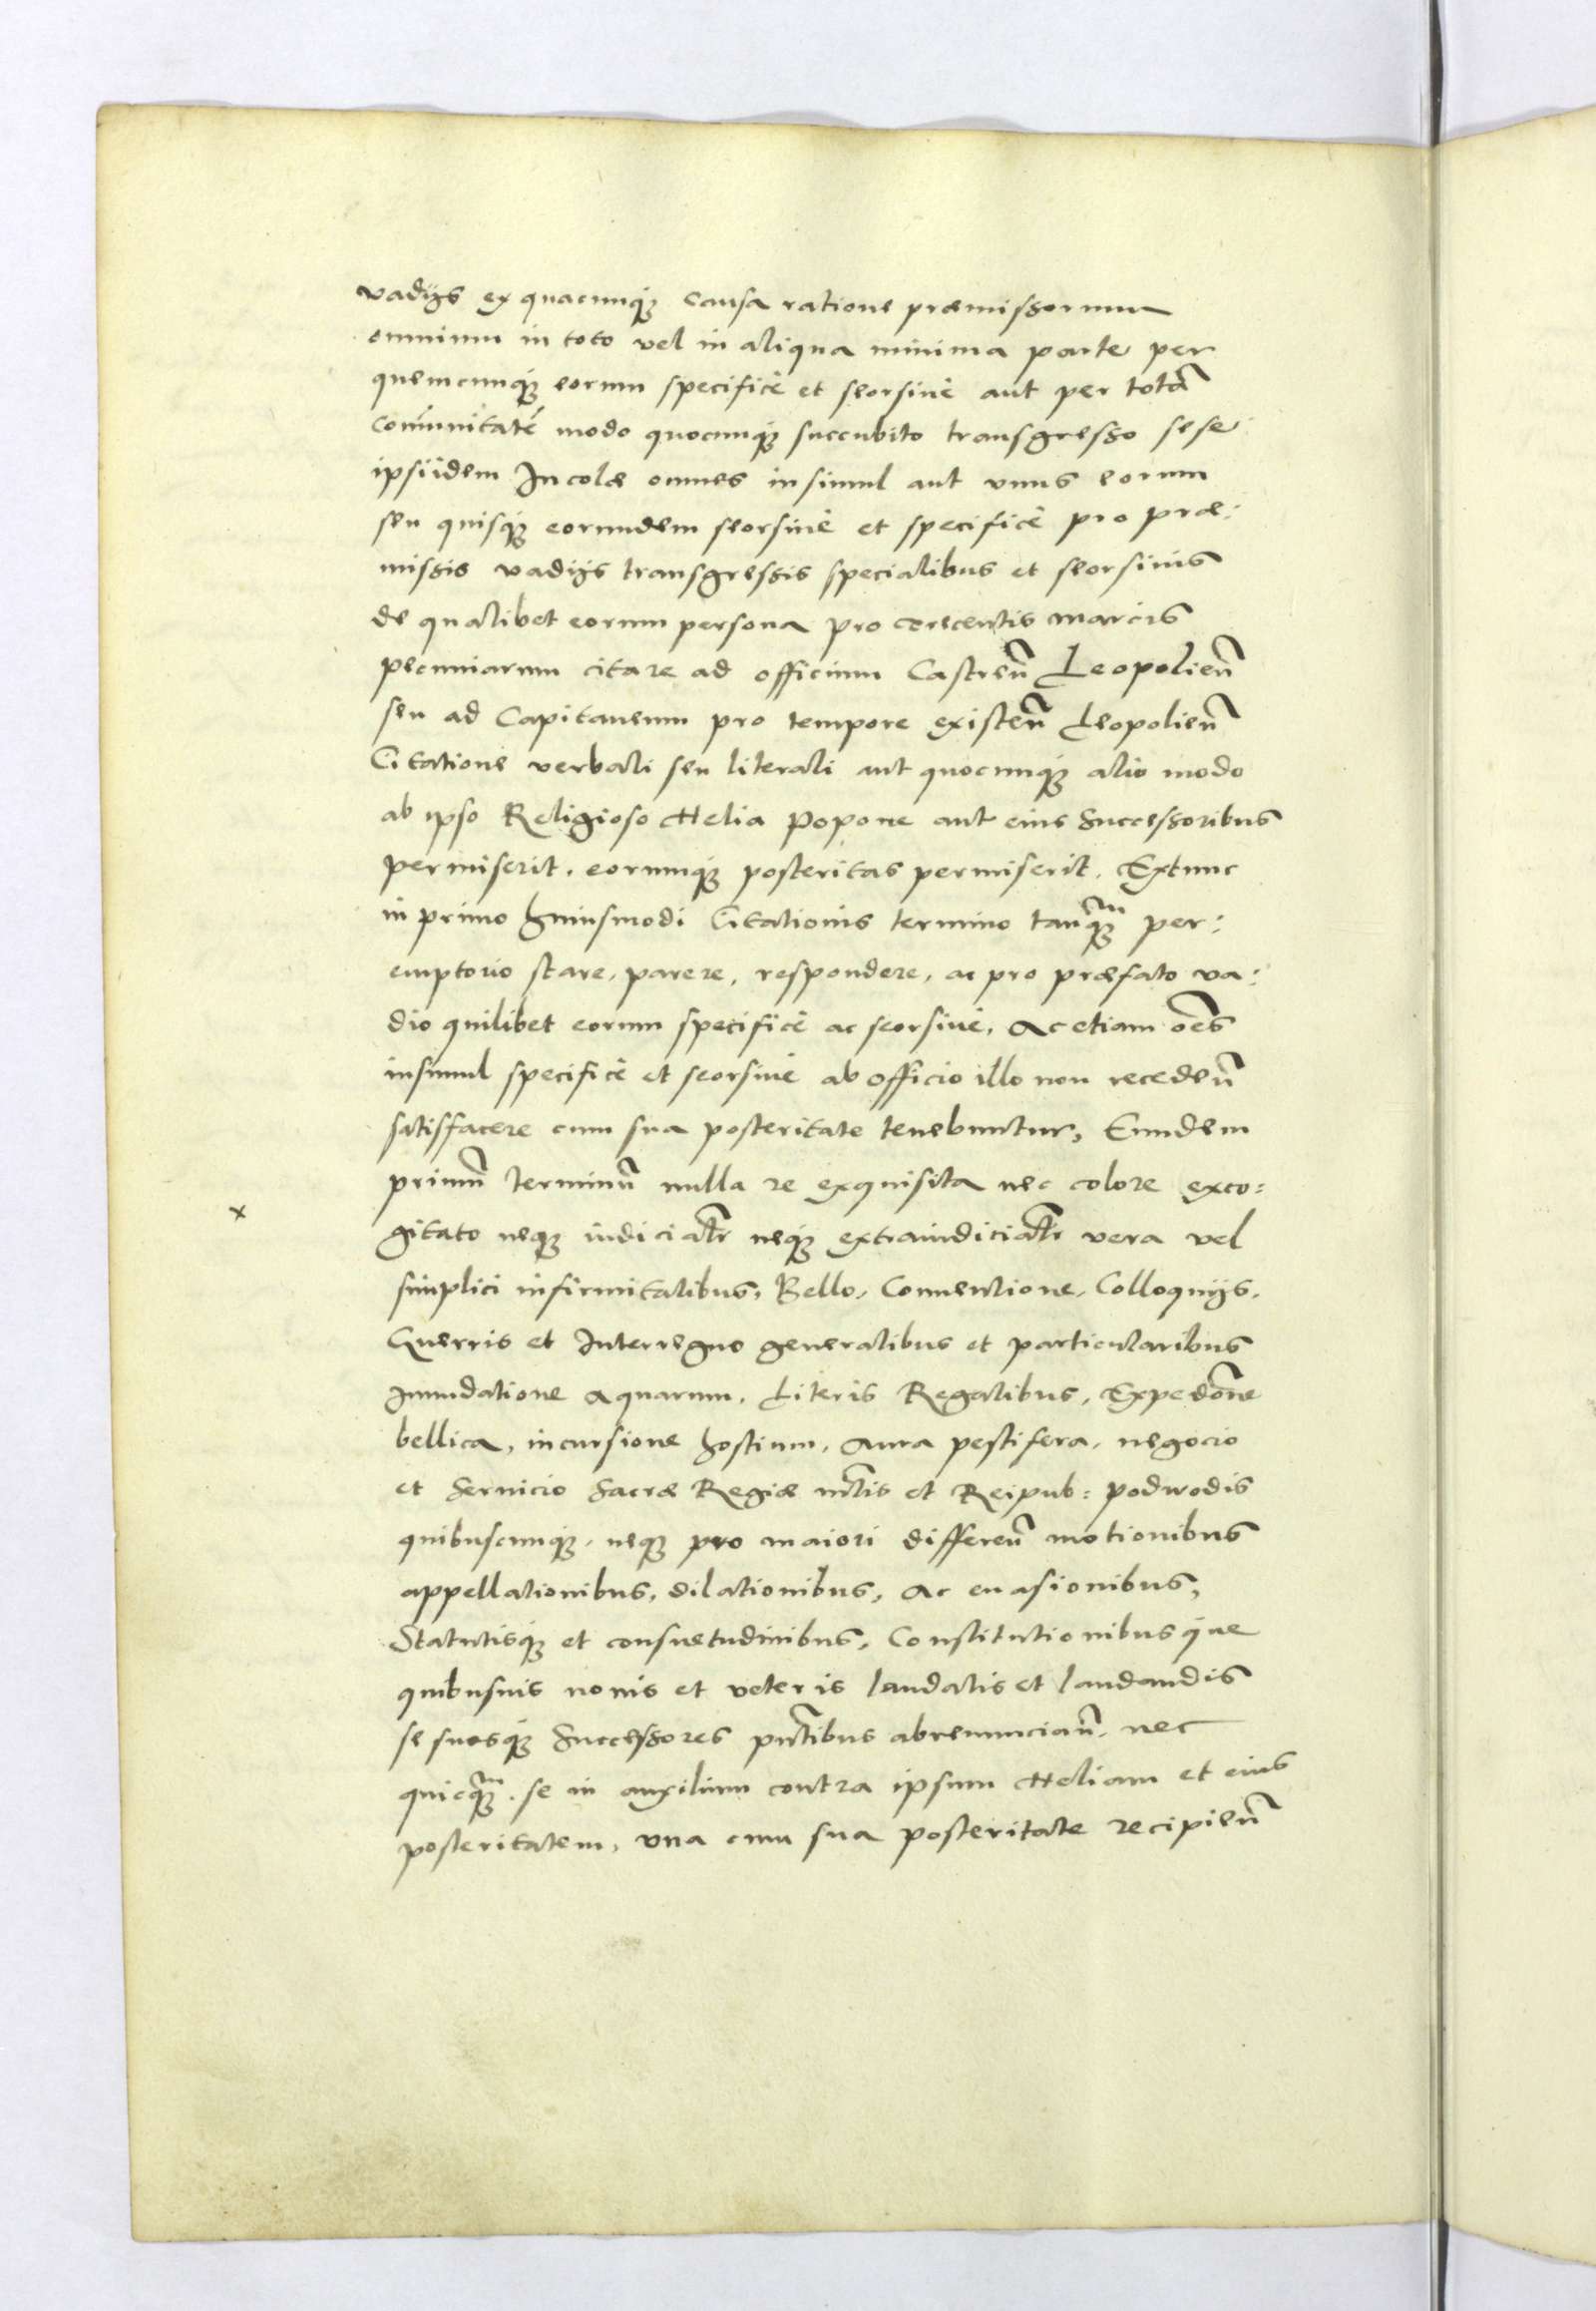 vadijs ex quacunque causa ratione præmissorum
omnium in toto vel in aliqua minima parte per
quemcunque eorum specificè et seorsivè aut per totã
com̃unitatẽ modo quocunque succubito transgresso sese
ipsiidem Incolæ omnes insimul aut vnus eorum
seu quisque eorundem seorsivè et specificè pro præ:
missis vadijs transgressis specialibus et seorsivis
de qualibet eorum persona pro marcis
pecuniarum citare ad officium Castreñ Leopolieñ
seu ad Capitaneum pro tempore existeñ Leopolieñ
Citatione verbali seu literali aut quocunque alio modo
ab ipso Religioso Helia Popone aut eius Successoribus
permiserit. eorumque posteritas permiserit. Extunc
in primo huiusmodi Citationis termino tanq̃m per:
emptorio stare, parere, respondere, ac pro præfato va:
dio quilibet eorum specificè ac seorsivè, Ac etiam oẽs
insimul specificè et seorsivè ab officio illo non recedeñ
satisfacere cum sua posteritate tenebuntur, Eundem
primũ terminũ nulla re exquisita nec colore exco:
x
gitato neque iudicialr̃ neque extraiudicialr̃ vera vel
simplici infirmitatibus, Bello, Conventione, Colloquijs,
Guerris et Interregno generalibus et particularibus
Inundatione Aquarum, Literis Regalibus, Expedõne
bellica, incursione hostium, Aura pestifera, negocio
et Servicio Sacræ Regiæ mt̃tis et Reipub: podwodis
quibuscunque, neque pro maiori differeñ motionibus
appellationibus, dilationibus, Ac evasionibus,
Statutisque et consuetudinibus, Constitutionibusque
quibusvis novis et veteris laudatis et laudandis
se suosque Successores pñtibus abrenunciañ, nec
quicq̃m se in auxilium contra ipsum Heliam et eius
posteritatem, vna cum sua posteritate recipieñ